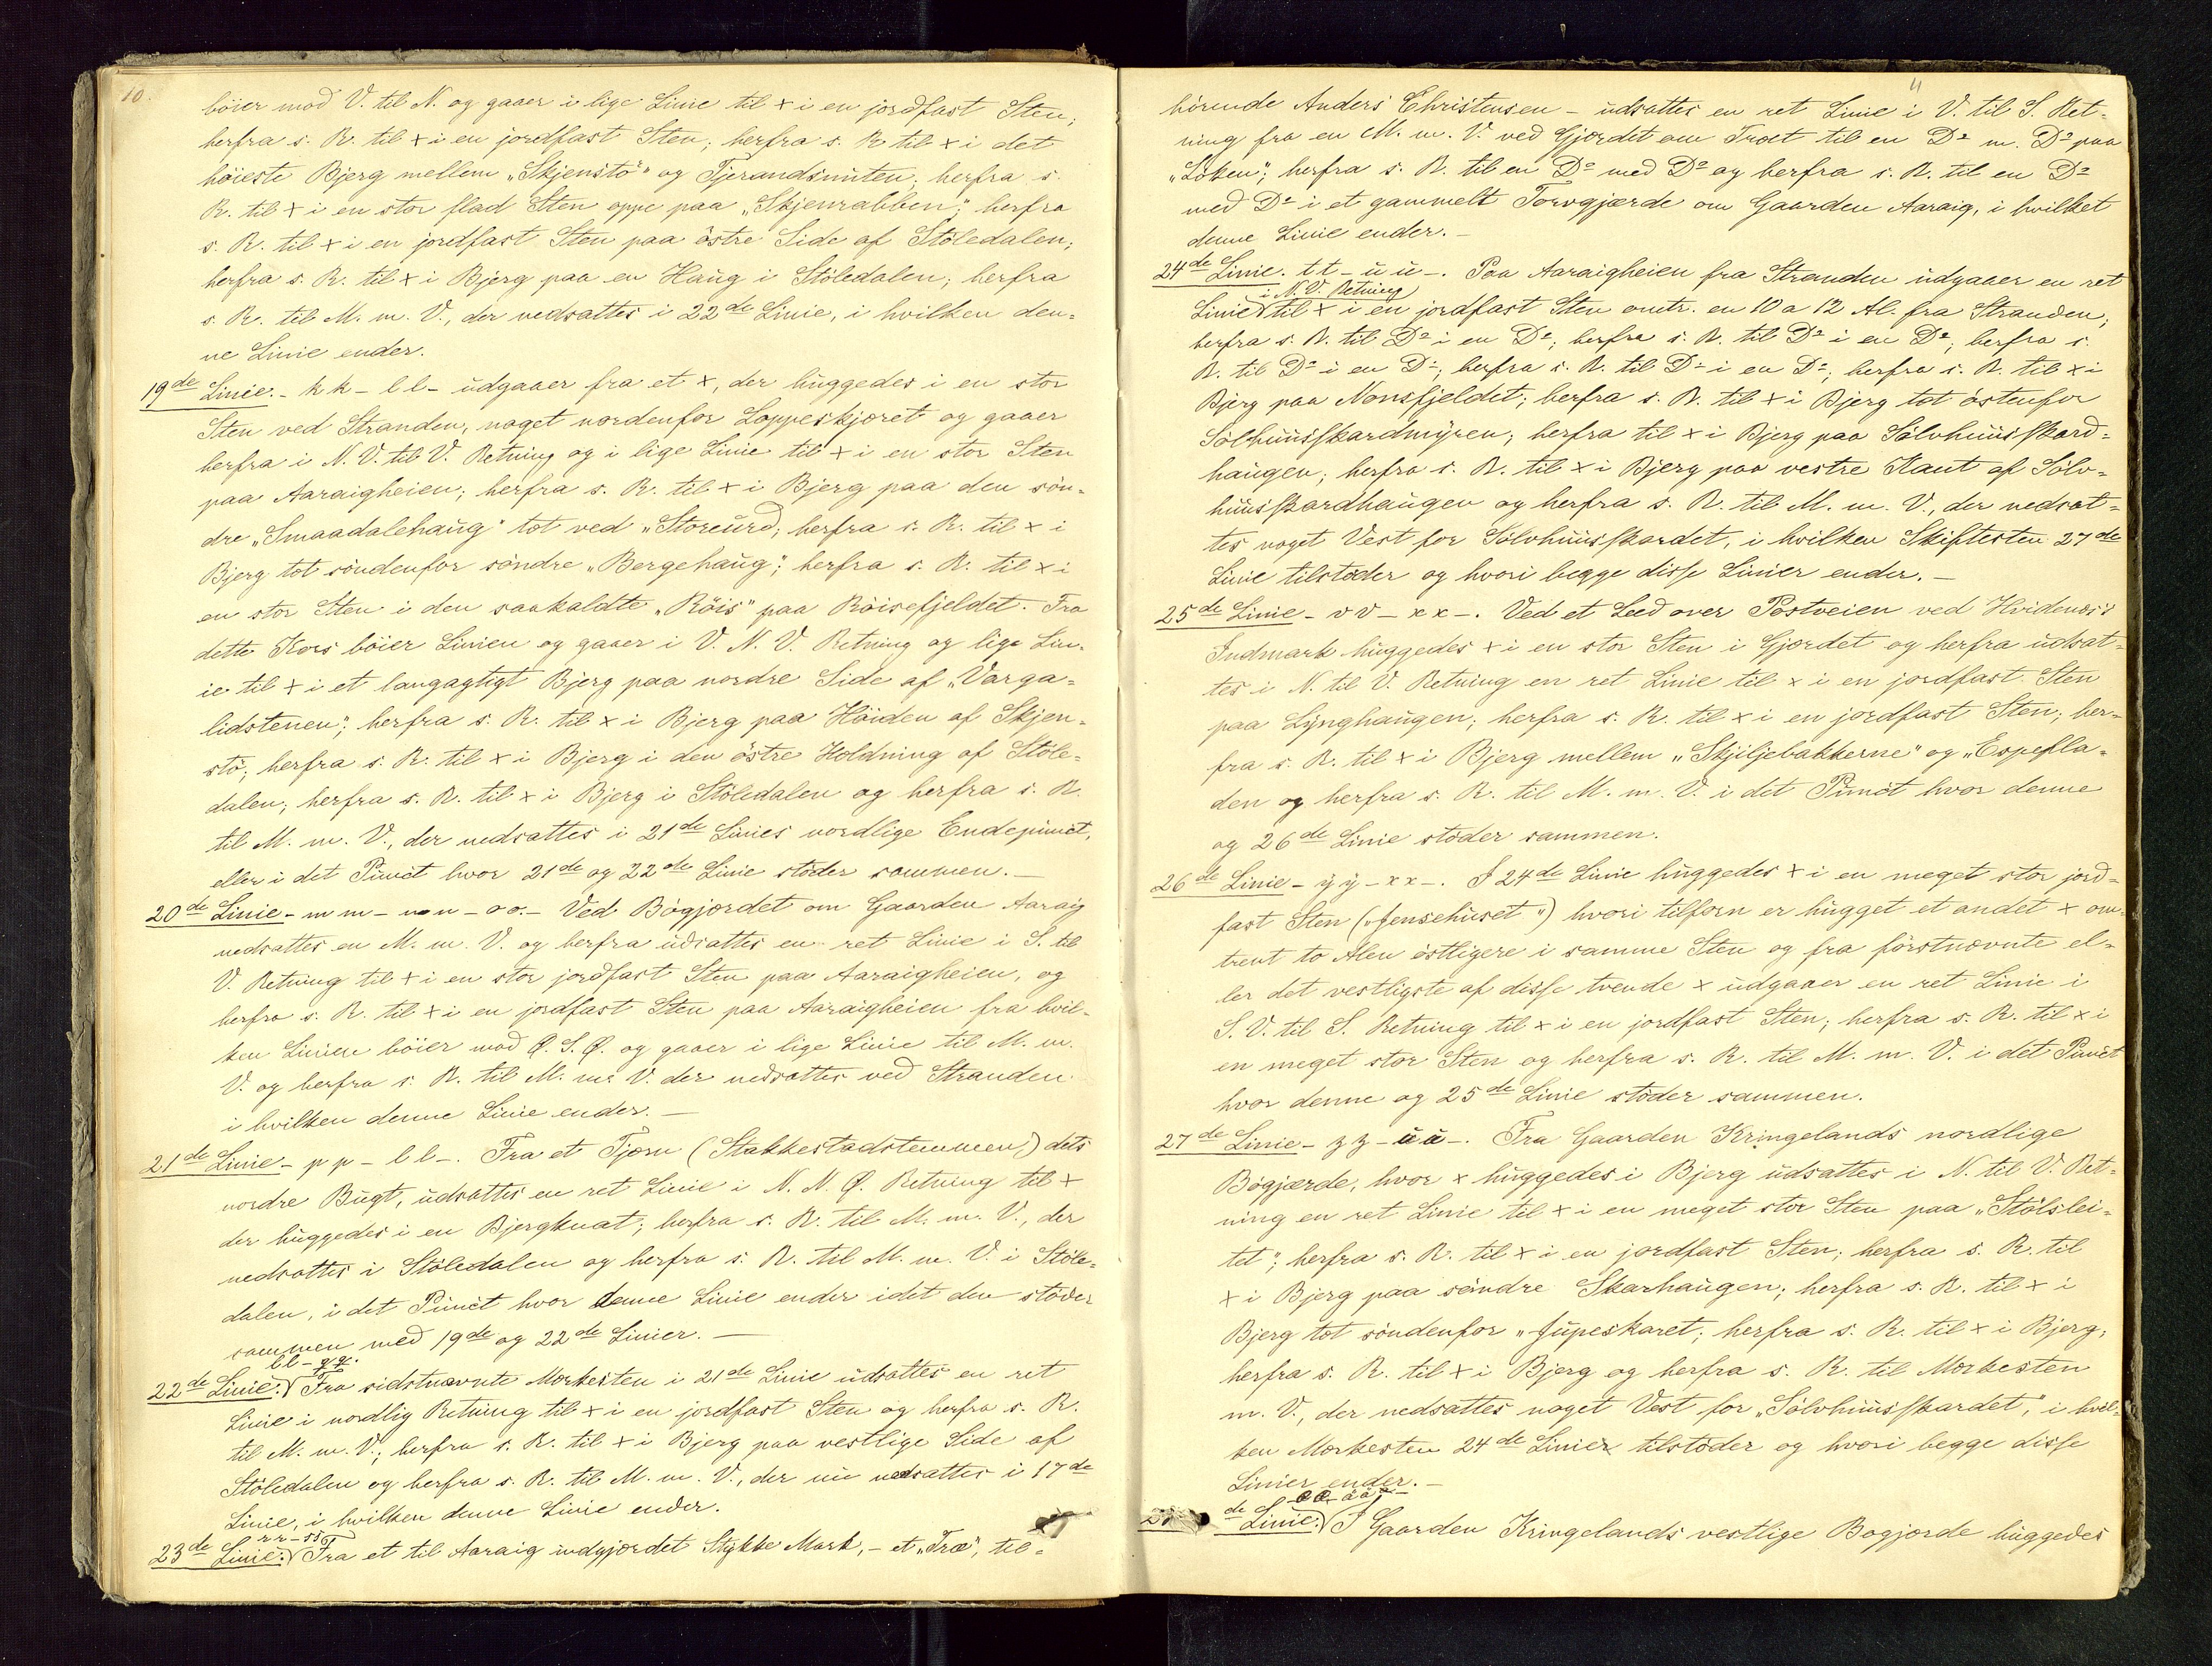 10.
böier mod V. til N. og gaaer i lige Linie til × i en jordfast Sten;
herfra s. R. til × i en jordfast Sten; herfra s. R. til × i det
höieste Bjerg mellem „Skjenstö" og Tjerandsnuten; herfra s.
R. til × i en stor flad Sten oppe paa „Skjenrabben"; herfra
s. R. til × i en jordfast Sten paa östre Side af Stöledalen;
herfra s. R. til × i Bjerg paa en Haug i Stöledalen; herfra
s. R. til M. m. V., der nedsattes i 22de Linie, i hvilken den-
ne Linie ender.
19de Linie. - kk - ll - udgaaer fra et ×, der huggedes i en stor
Sten ved Stranden, noget nordenfor Loppeskjæret og gaaer
herfra i N. V. til V. Retning og i lige Linie til × i en stor Sten
paa Aaraigheien; herfra s. R. til × i Bjerg paa den sön-
dre „Smaadalehaug" tæt ved „Storeurd; herfra s. R. til × i
Bjerg tæt söndenfor söndre „Bergehaug"; herfra s. R. til × i
en stor Sten i den saakaldte „Röis" paa Röisefjeldet. Fra
dette Kors böier Linien og gaaer i V. N. V. Retning og lige Lin-
ie til × i et langagtigt Bjerg paa nordre Side af „Varga-
lidstenen"; herfra s. R. til × i Bjerg paa Höiden af Skjen-
stö; herfra s. R. til × i Bjerg i den östre Holdning af Stöle-
dalen; herfra s. R. til × i Bjerg i Stöledalen og herfra s. R.
til M. m. V., der nedsattes i 21de Linies nordlige Endepunct,
eller i det Punct hvor 21de og 22de Linie stöder sammen. -
20de Linie - mm - nn - oo. - Ved Bögjærdet om Gaarden Aaraig
nedsattes en M. m. V. og herfra udsattes en ret Linie i S. til
V. Retning til × i en stor jordfast Sten paa Aaraigheien, og
herfra s. R. til × i en jordfast Sten paa Aaraigheien fra hvil-
ken Linien böier mod Ø. S. Ø. og gaaer i lige Linie til M. m.
V. og herfra s. R. til M. m. V. der nedsattes ved Stranden
i hvilken denne Linie ender. -
21de Linie - pp - ll -. Fra et Tjærn (Stakkestadstemmen) dets
nordre Bugt, udsattes en ret Linie i N. N. Ø. Retning til ×
der huggedes i en Bjergknat; herfra s. R. til M. m. V., der
nedsattes i Stöledalen og herfra s. R. til M. m. V. i Stöle-
dalen, i det Punct hvor denne Linie ender idet den stöder
sammen med 19de og 22de Linier. -
ll - qq.
22de Linie. Fra sidstnævnte Mærkesten i 21de Linie udsattes en ret
Linie i nordlig Retning til × i en jordfast Sten og herfra s. R.
til M. m. V.; herfra s. R. til × i Bjerg paa vestlige Side af
Stöledalen og herfra s. R. til M. m. V., der nu nedsattes i 17de
Linie, i hvilken denne Linie ender.
rr - ss
23de Linie. Fra et til Aaraig indgjærdet Stykke Mark, - et „Træ", til-
11
hörende Anders Christensen - udsattes en ret Linie i V. til S. Ret-
ning fra en M. m. V. ved Gjærdet om Træet til en Do m. Do paa
„Löken"; herfra s. R. til en Do med Do og herfra s. R. til en Do
med Do i et gammelt Torvgjærde om Gaarden Aaraig, i hvilket
denne Linie ender. -
24de Linie. tt - uu -. Paa Aaraigheien fra Stranden udgaaer en ret
i N. V. Retning
Linie til × i en jordfast Sten omtr. en 10 a 12 Al. fra Stranden;
herfra s. R. til Do i en Do; herfra s. R. til Do i en Do; herfra s.
R. til Do i en Do; herfra s. R. til Do i en Do; herfra s. R. til × i
Bjerg paa Nonsfjeldet; herfra s. R. til × i Bjerg tæt östenfor
Sölhuusskardmyren; herfra til × i Bjerg paa Sölvhuusskard-
haugen; herfra s. R. til × i Bjerg paa vestre Kant af Sölv-
huusskardhaugen og herfra s. R. til M. m. V., der nedsat-
tes noget Vest for Sölvhuusskardet, i hvilken Skiftesten 27de
Linie tilstöder og hvori begge disse Linier ender. -
25de Linie - vv - xx -. Ved et Leed over Postveien ved Hvidenæss
Indmark huggedes × i en stor Sten i Gjærdet og herfra udsat-
tes i N. til V. Retning en ret Linie til × i en jordfast Sten
paa Lynghaugen; herfra s. R. til × i en jordfast Sten; her-
fra s. R. til × i Bjerg mellem „Skjiljebakkerne" og „Espefla-
den og herfra s. R. til M. m. V. i det Punct hvor denne
og 26de Linie stöder sammen.
26de Linie - yy - xx -. I 24de Linie huggedes × i en meget stor jord-
fast Sten („Jensehuset") hvori tilforn er hugget et andet × om-
trent to Alen östligere i samme Sten og fra förstnævnte el-
ler det vestligste af disse tvende × udgaaer en ret Linie i
S. V. til S. Retning til × i en jordfast Sten; herfra s. R. til × i
en meget stor Sten og herfra s. R. til M. m. V. i det Punct
hvor denne og 25de Linie stöder sammen.
27de Linie - zz - uu -. Fra Gaarden Kringelands nordlige
Bögjærde, hvor × huggedes i Bjerg udsattes i N. til V. Ret-
ning en ret Linie til × i en meget stor Sten paa „Stölslei-
tet"; herfra s. R. til × i en jordfast Sten; herfra s. R. til
× i Bjerg paa söndre Skarhaugen; herfra s. R. til × i
Bjerg tæt söndenfor „Jupeskaret; herfra s. R. til × i Bjerg;
herfra s. R. til × i Bjerg og herfra s. R. til Mærkesten
m. V., der nedsattes noget Vest for „Sölvhuusskardet", i hvil-
ken Mærkesten 24de Linie tilstöder og hvori begge disse
Linier ender. -
de Linie. I Gaarden Kringelands vestlige Bøgjærde huggedes